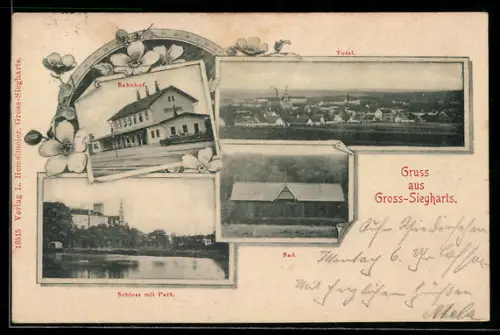 Bahnhof.
Total.
Gruss
aus
Gross-Siegharts.
Bad.
Schloss mit Park.
16515 Verlag L. Hemelmeier, Gross-Siegharts.
Auf Wiedersehen
Montag 6
Mit herzlichen Grüßen